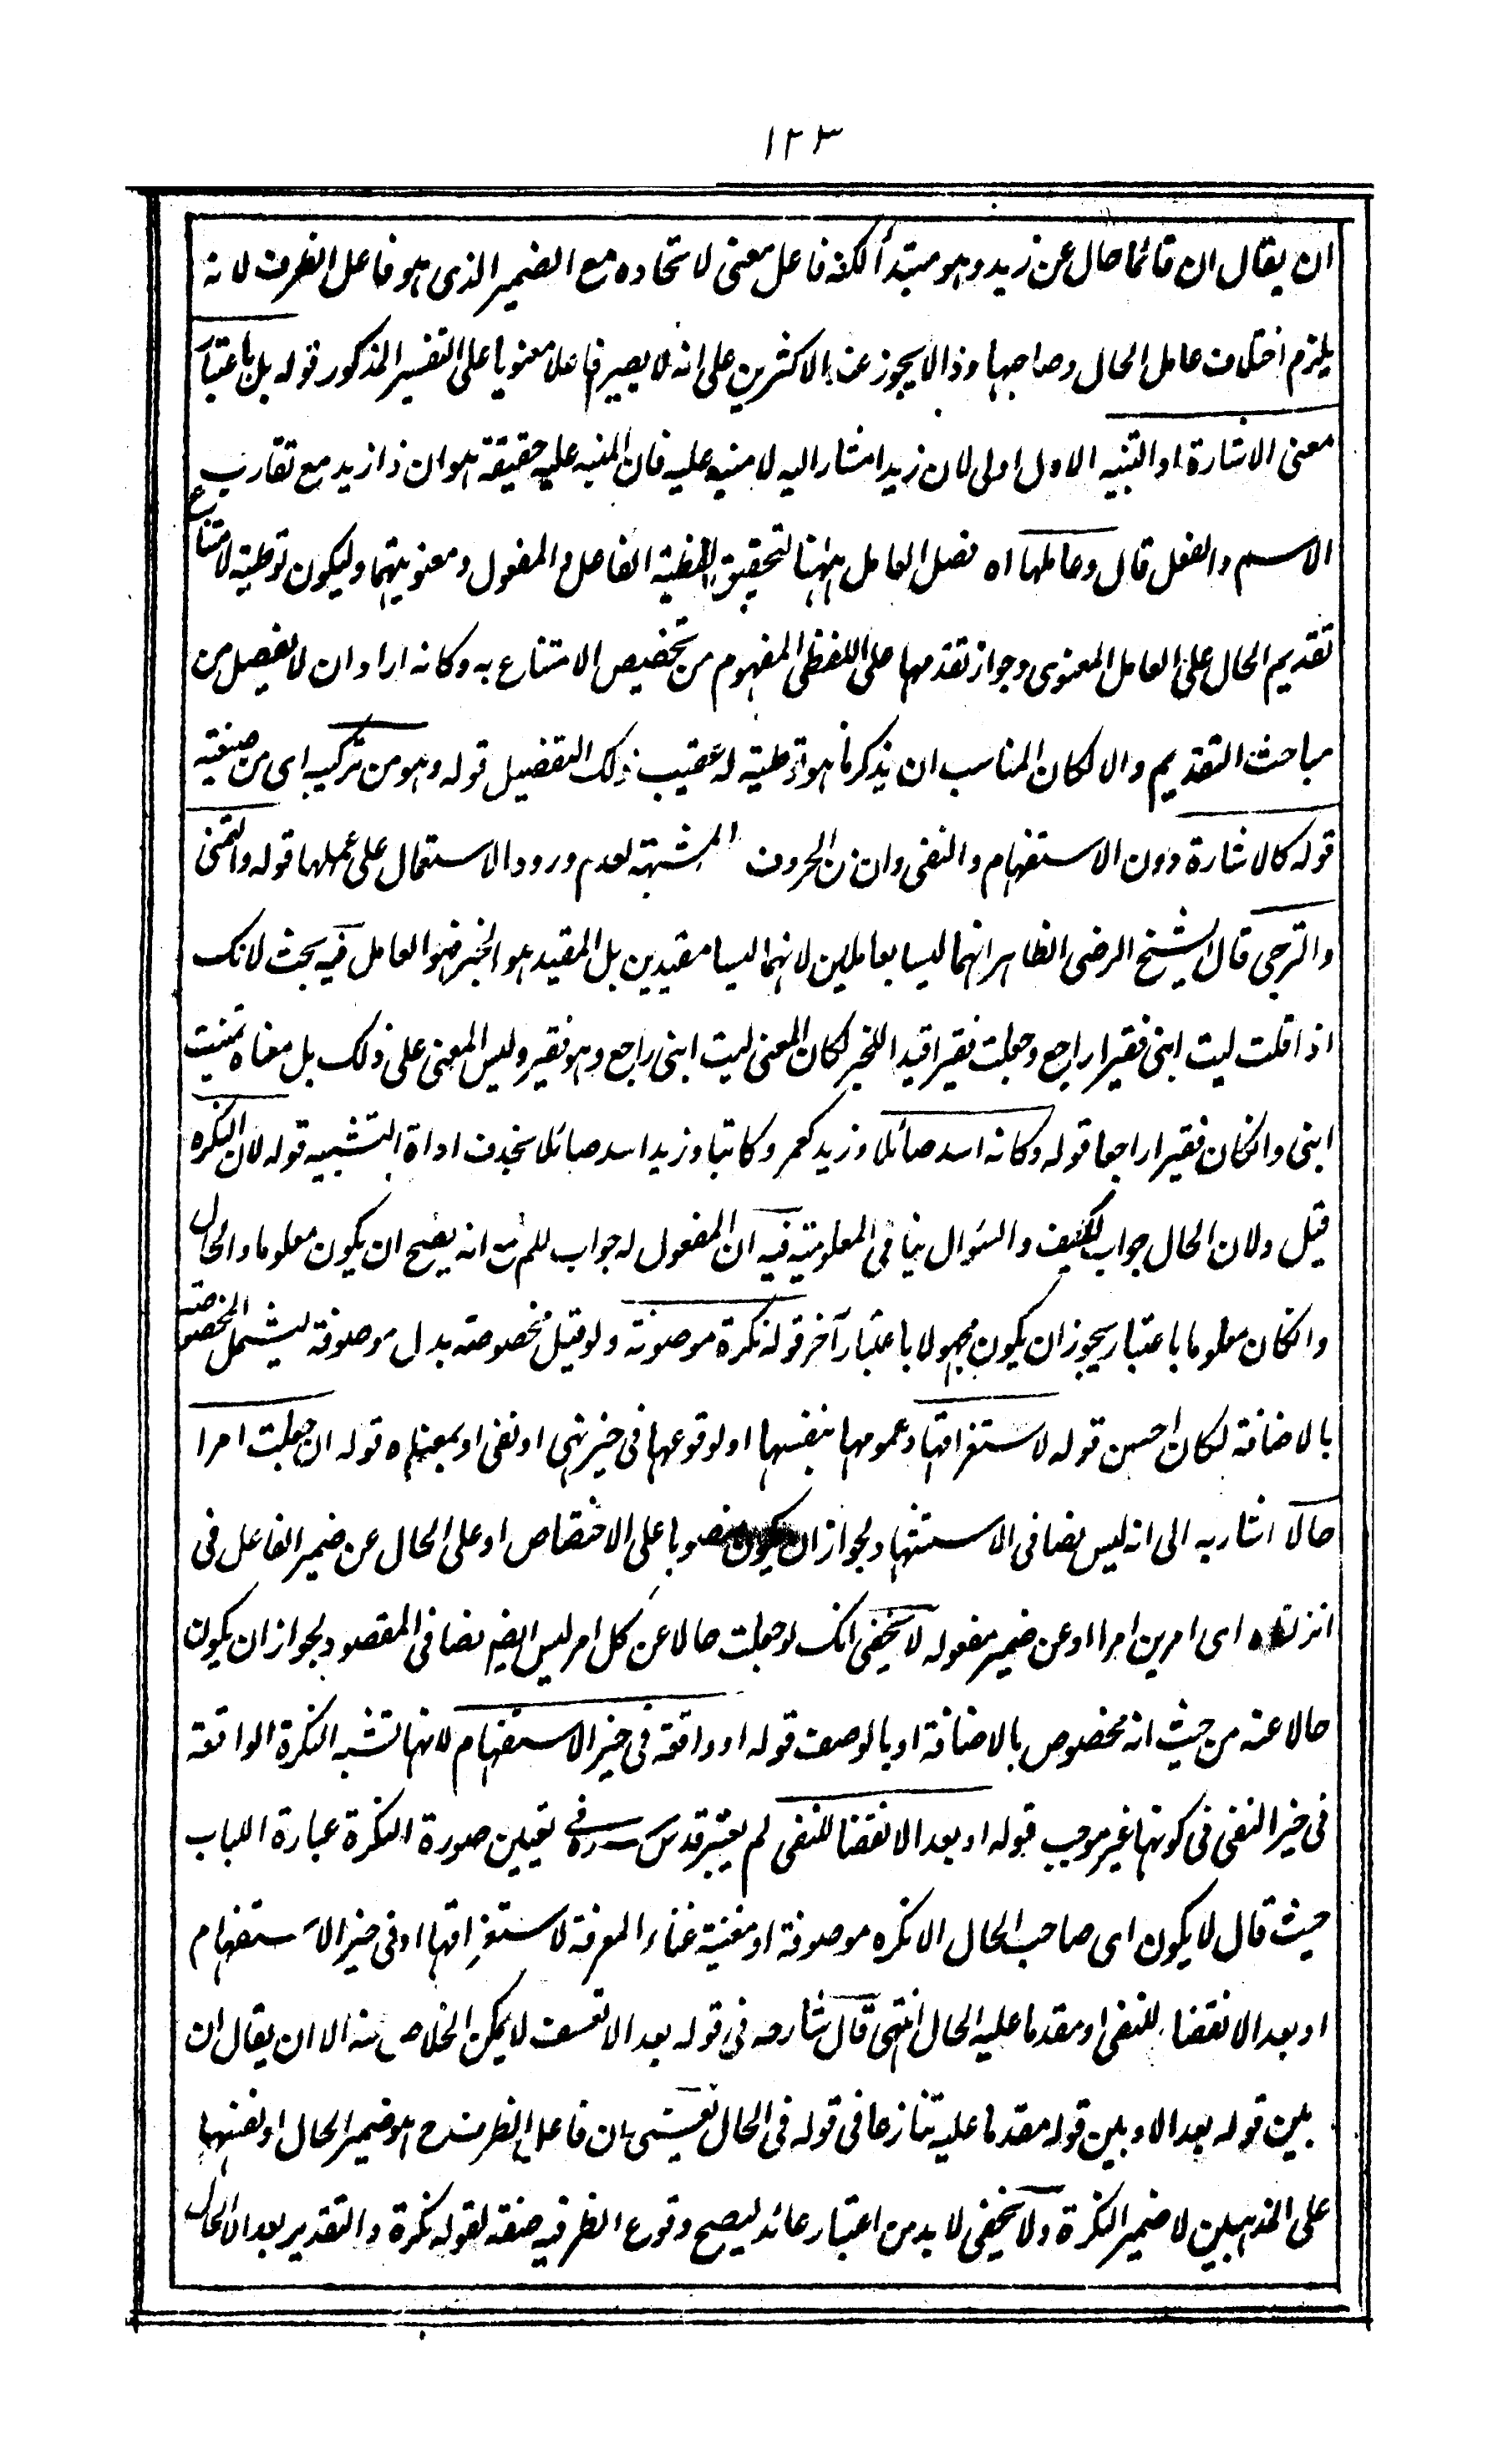 ١٢٣
ان يقال ان قائما حال عن زيد وهو مبتدأ لكنه فاعل معنى لاتحاده مع الضمير الذى هو فاعل الظرف لانه
يلزم اختلاف عامل الحال وصاحبها وذا لا يجوز عند الاكثرين على انه لا يصير فاعلا معنويا على التفسير المذكور قوله بل باعتبار
معنى الاشارة او التنبيه الاول اولى لان زيدا مشار اليه لا منبه عليه فان المنبه عليه حقيقة هو ان ذا زيد مع تقارب
الاسم والفعل قال وعاملها اه فصل العامل ههنا لتحقيق لفظية الفاعل والمفعول ومعنويتهما وليكون توطية لامتناع
تقديم الحال على العامل المعنوى وجواز تقدمها على اللفظى المفهوم من تخصيص الامتناع به وكانه اراد ان لا يفصل من
مباحث التقديم والا لكان المناسب ان يذكر ما هو توطية له عقيب ذلك التفصيل قوله وهو من تركيبه اى من صيغته
قوله كالاشارة دون الاستفهام والنفى وان من الحروف المشبهة لعدم ورود الاستعمال على عملها قوله والتمنى
والترجى قال الشيخ الرضى الظاهر انهما ليسا بعاملين لانهما ليسا مقيدين بل المقيد هو الخبر فهو العامل فيه بحث لانك
اذا قلت ليت ابنى فقيرا راجع وجعلت فقيرا قيد اللخبر لكان المعنى ليت ابنى راجع وهو فقير وليس المعنى على ذلك بل معناه تمنيت
ابنى وان كان فقيرا راجعا قوله وكانه اسد صائلا وزيد كعمرو كاتبا وزيد اسد صائلا بحذف اداة التشبيه قوله لان النكره
قيل ولان الحال جواب لكيف والسؤال ينافى المعلومية فيه ان المفعول له جواب للم مع انه يصح ان يكون معلوما والحال
وان كان معلوما باعتبار يجوز ان يكون مجهولا باعتبار آخر قوله نكرة موصوفة ولو قيل مخصوصة بدل موصوفة ليشمل المخصوصة
بالاضافة لكان احسن قوله لاستغراقها وعمومها بنفسها او لوقوعها فى حيز نهى او نفى او بمعناه قوله ان جعلت امرا
حالا اشار به الى انه ليس نصا فى الاستشهاد لجواز ان يكون منصوبا على الاختصاص او على الحال عن ضمير الفاعل فى
انزلناه اى امرين امرا او عن ضمير مفعوله لا يخفى انك لو جعلت حالا عن كل امر ليس ايضا نصا فى المقصود لجواز ان يكون
حالا عنه من حيث انه مخصوص بالاضافة او بالوصف قوله او واقعة فى حيز الاستفهام لانها تشبه النكرة الواقعة
فى حيز النفى فى كونها غير موجب قوله او بعد الا نقضا للنفى لم يعتبر قدس سره فى تعيين صورة النكرة عبارة اللباب
حيث قال لا يكون اى صاحب الحال الا نكره موصوفة او مغنية غناء المعرفة لاستغراقها او فى حيز الاستفهام
او بعد الا نقضا للنفى او مقدما عليه الحال انتهى قال شارحه فى قوله بعد الا تعسف لا يمكن الخلاص منه الا ان يقال ان
بين قوله بعد الا وبين قوله مقدما عليه تنازعا فى قوله فى الحال تعسف ان فاعل الظرف ح هو ضمير الحال او نفسها
على المذهبين لا ضمير النكرة ولا يخفى لا بد من اعتبار عائد ليصح وقوع الظرفيه صفة لقوله نكرة والتقدير بعد الا الحال